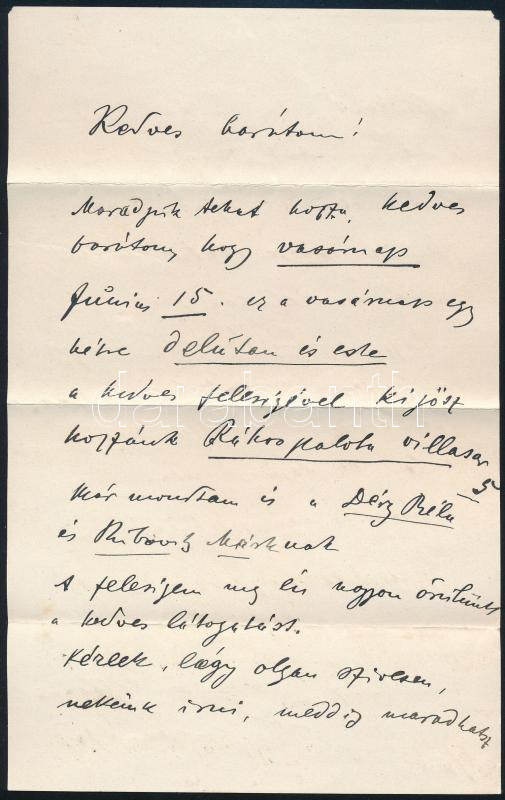 Kedves barátom!
Maradjunk tehát hozzá, kedves
barátom, hogy vasárnap
Június 15. ez a vasárnap egy
hétre délután és este
a kedves feleségével kijösz
hozzánk Rákospalota villasor
5
Már mondtam is a Déry Béla
és Rubovits Márknak
A feleségem meg én nagyon örülünk
a kedves látogatást.
Kérlek, légy olyan szívesen,
nekünk írni, meddig maradhatsz
darabanth